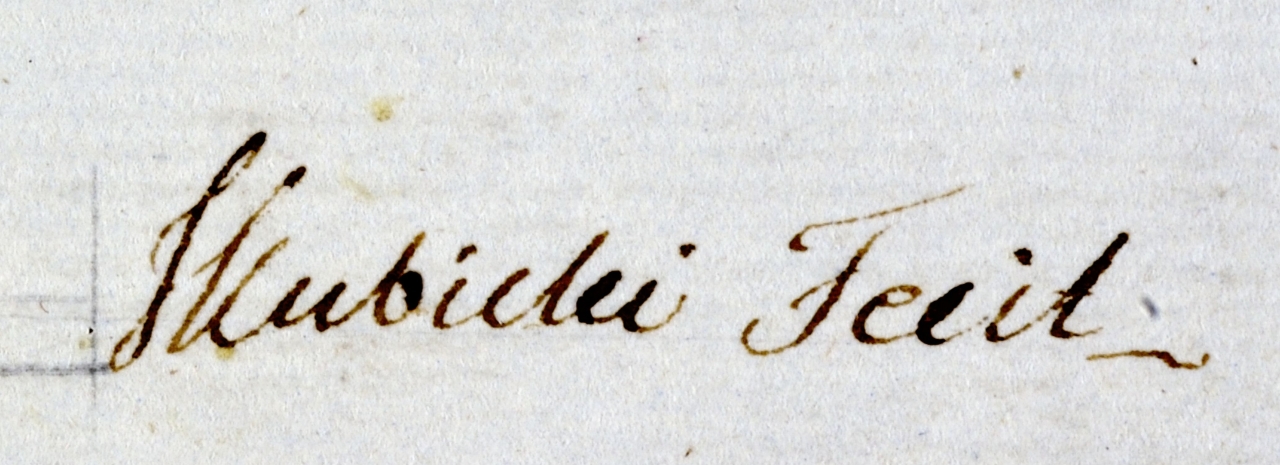 JKubicki Fecit